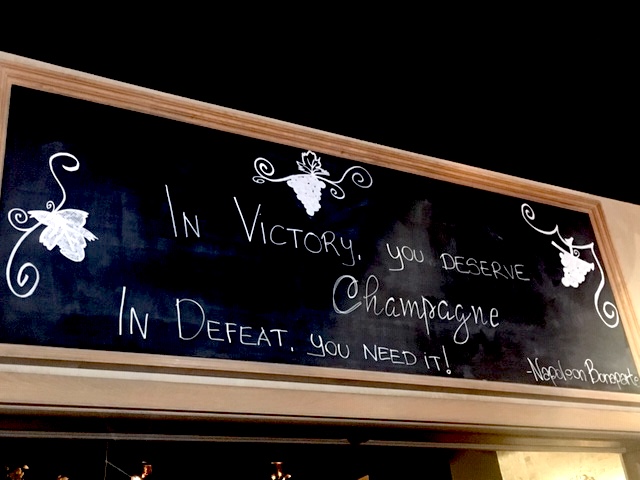 In Victory, you deserve
Champagne
In Defeat, you need it!
-Napoleon Bonaparte